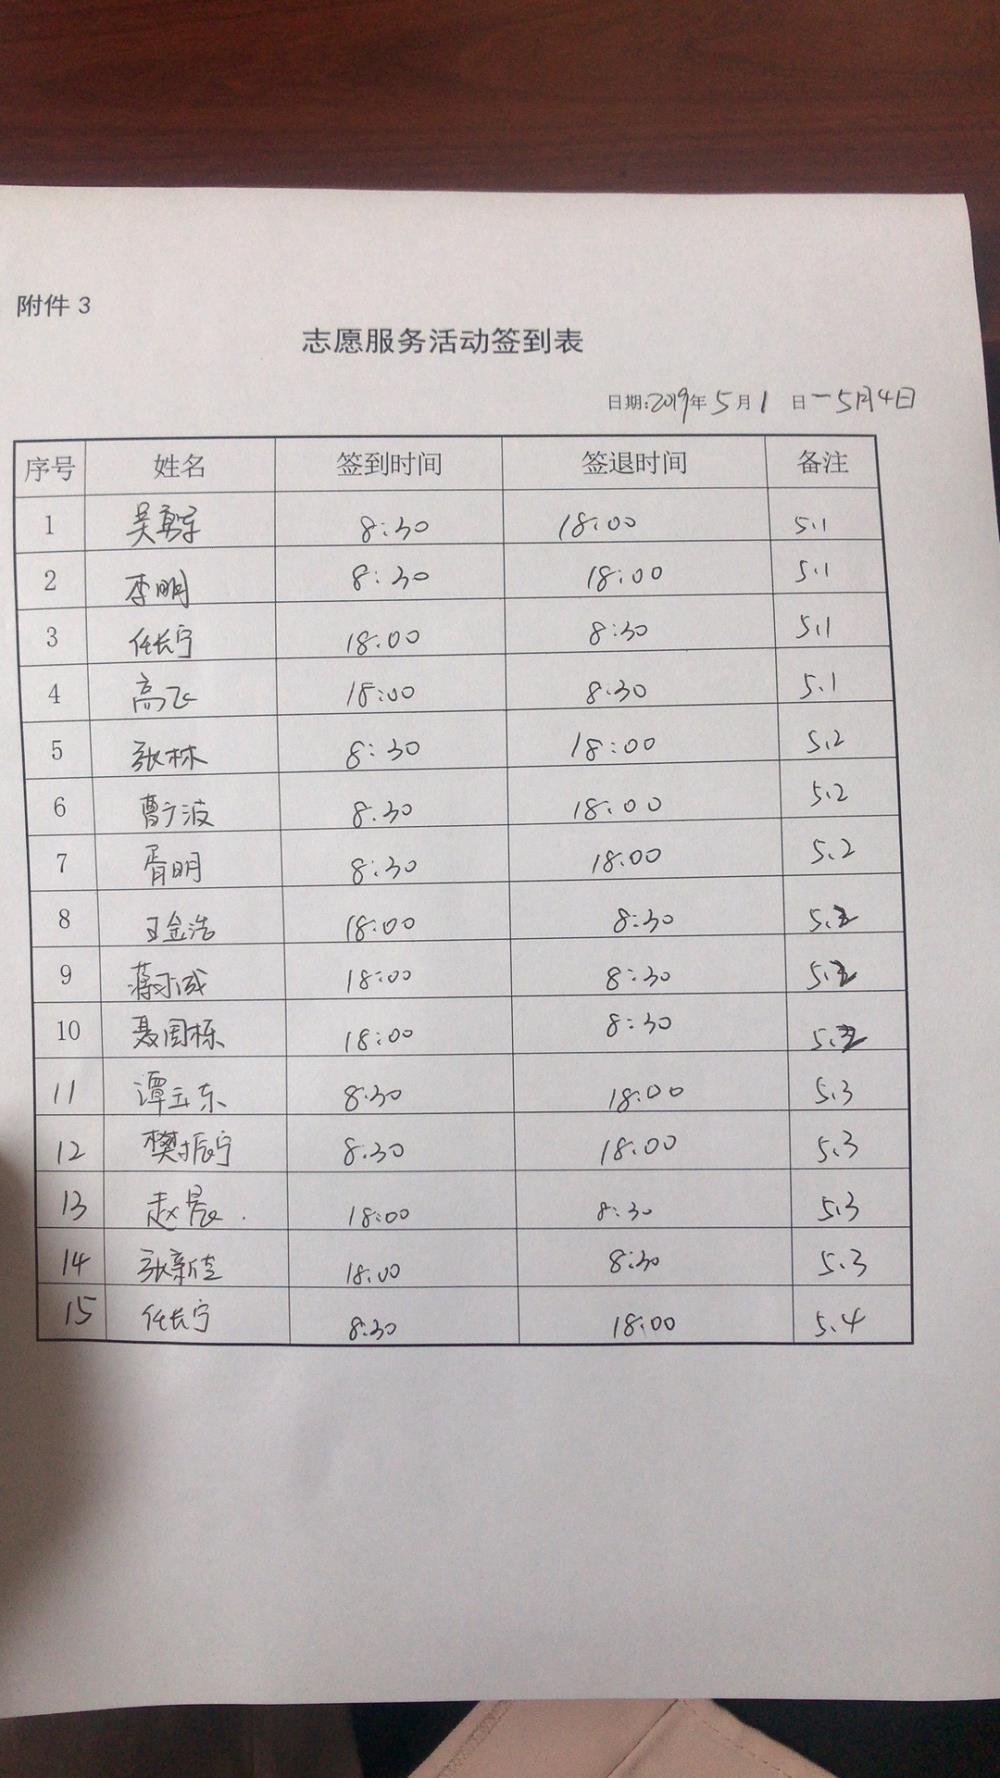 附件 3
志愿服务活动签到表
日期:2019年5月1日-5月4日
序号 姓名 签到时间 签退时间 备注
1 吴勇军 8:30 18:00 5.1
2 李明 8:30 18:00 5.1
3 任长宁 18:00 8:30 5.1
4 高飞 18:00 8:30 5.1
5 张林 8:30 18:00 5.2
6 曹广波 8:30 18:00 5.2
7 胥明 8:30 18:00 5.2
8 王金浩 18:00 8:30 5.2
9 蒋 成 18:00 8:30 5.2
10 聂国栋 18:00 8:30 5.2
11 谭立东 8:30 18:00 5.3
12 樊振宁 8:30 18:00 5.3
13 赵晨 18:00 8:30 5.3
14 张新佳 18:00 8:30 5.3
15 任长宁 8:30 18:00 5.4